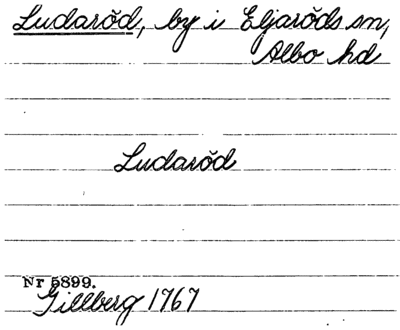 Ludaröd, by i Eljaröds sn,
Albo hd
Ludaröd
Nr 5899.
Gillberg 1767